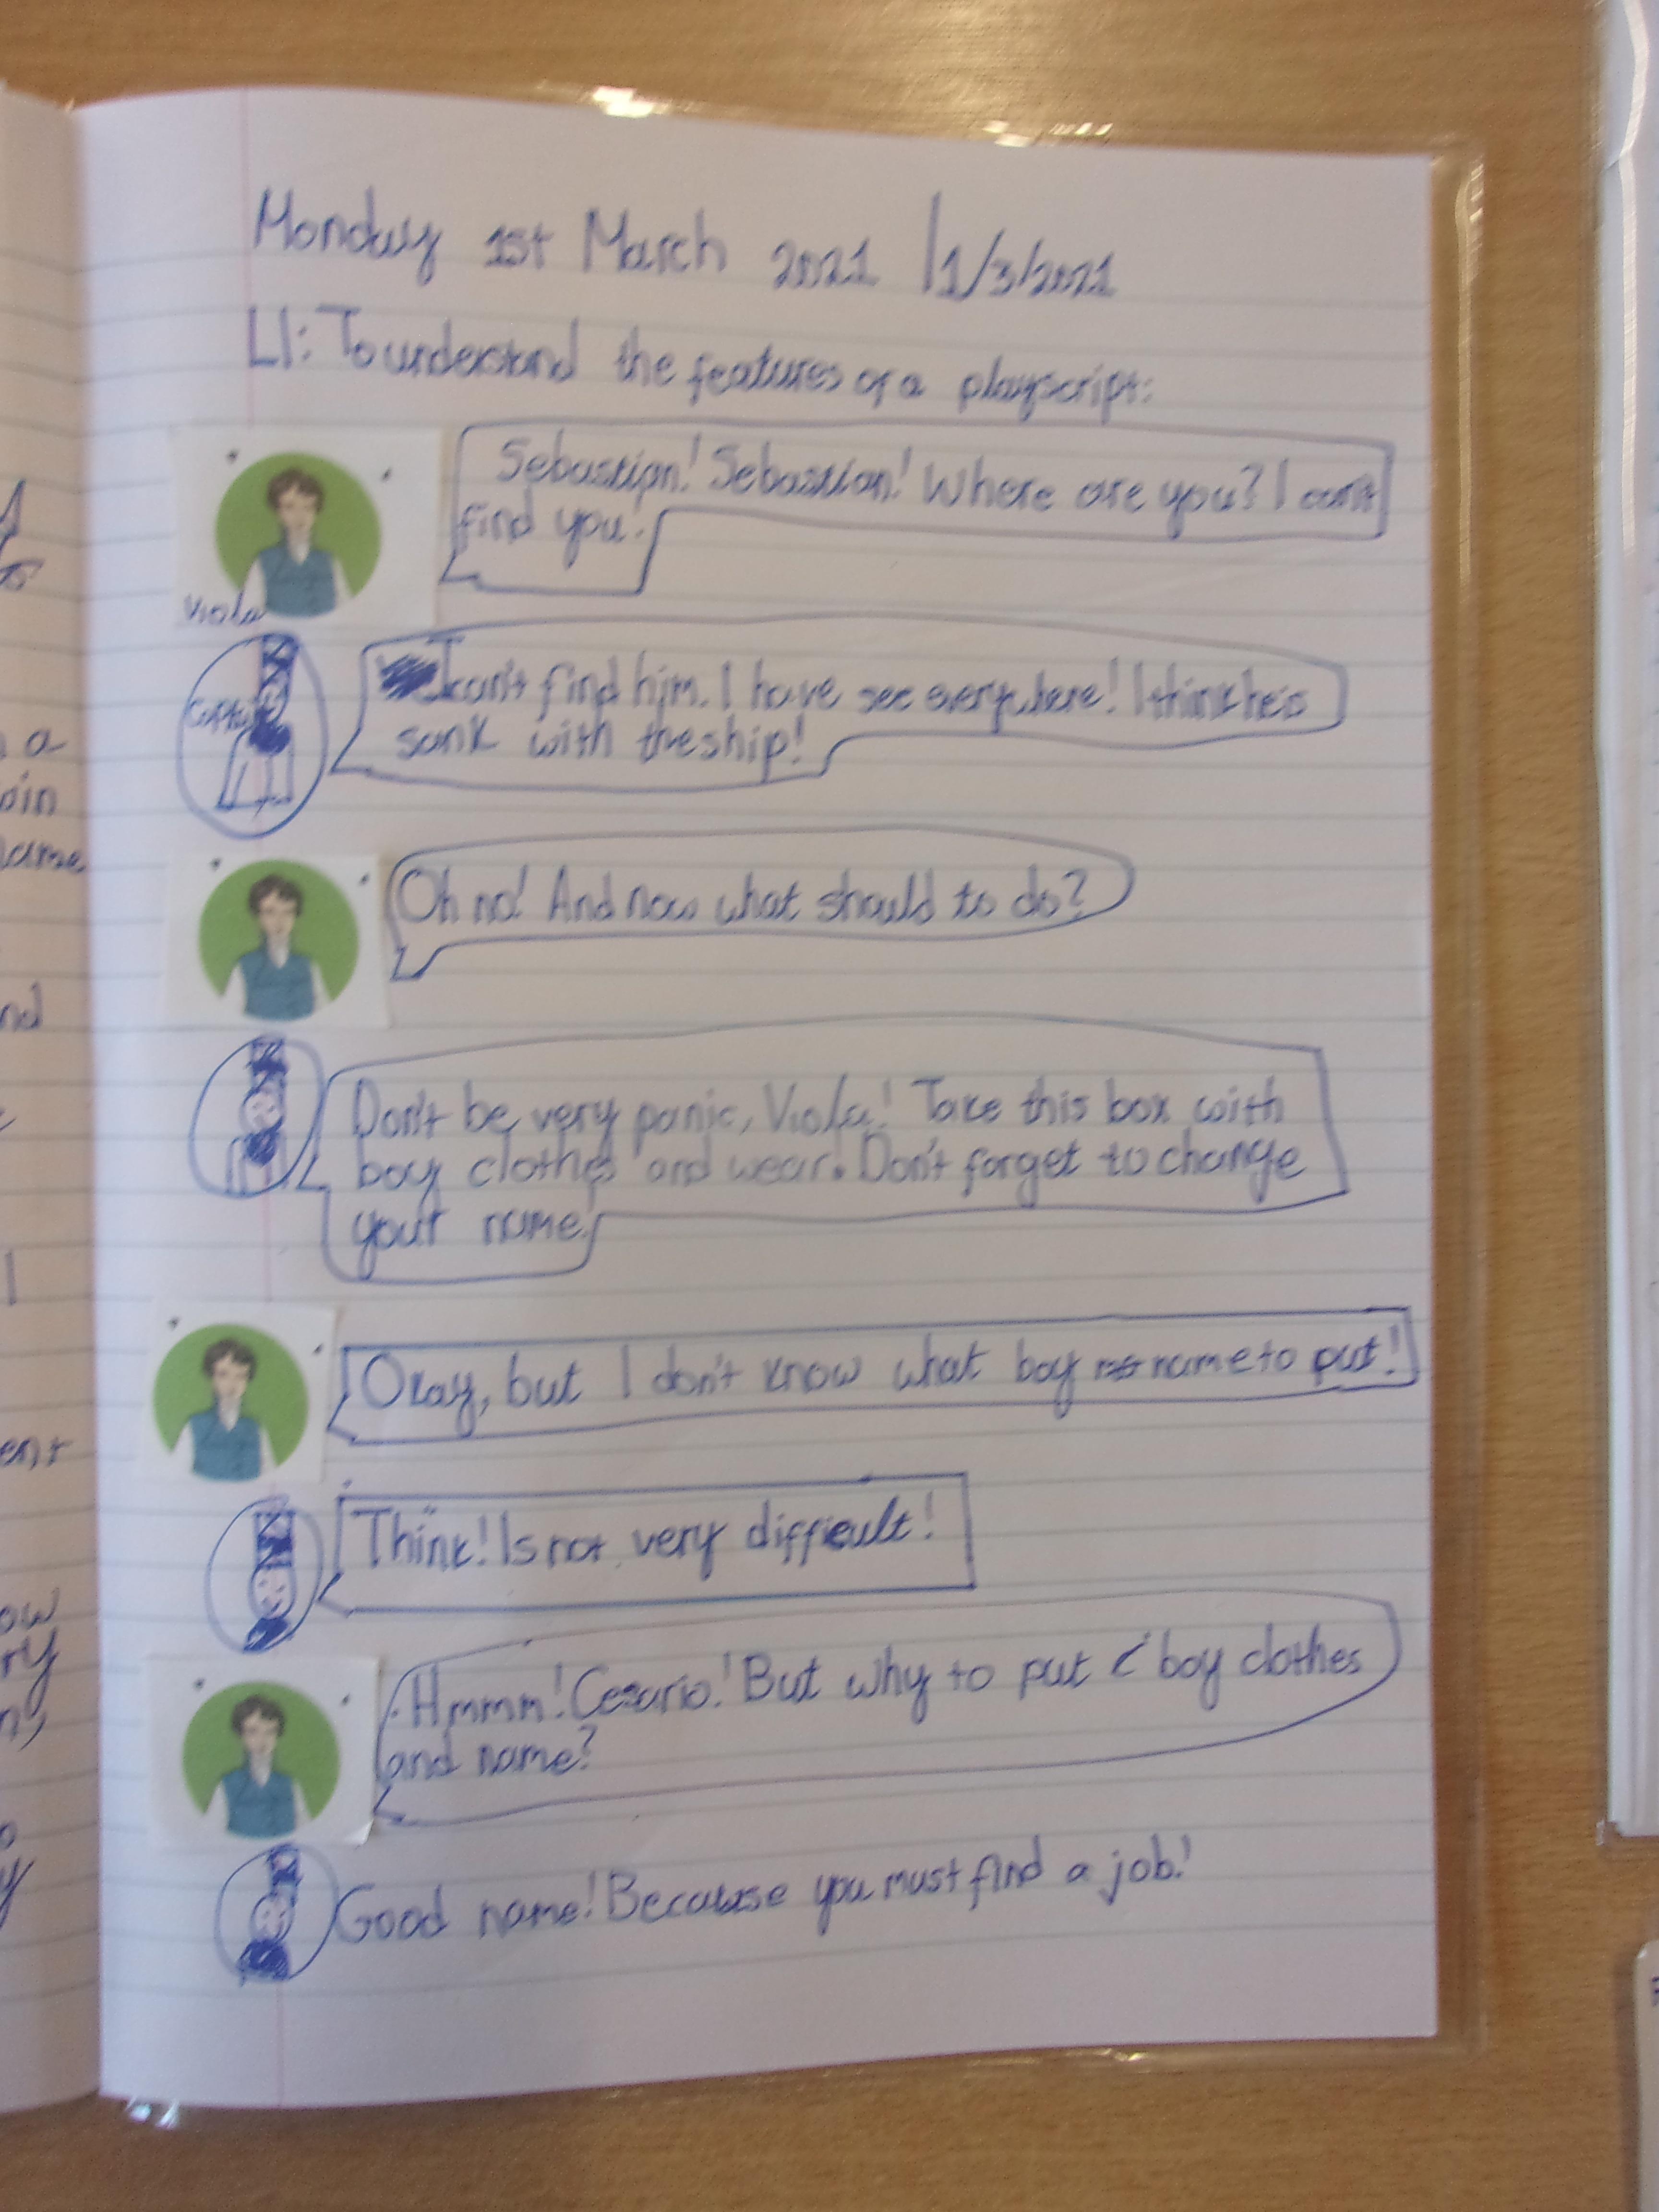 Monday 1st March 2021 | 1/3/2021
LI: To understand the features of a playscript:
Sebastian! Sebastian! Where are you? I can't
find you!
Viola
Capta
I can't find him. I have see everywhere! I think he's
sank with the ship!
Oh no! And now what should to do?
Don't be very panic, Viola! Take this box with
boy clothes and wear. Don't forget to change
your name!
Okay, but I don't know what boy name to put!
Think! Is not very difficult!
Hmmm! Cesario! But why to put boy clothes
and name?
Good name! Because you must find a job!
a
ain
ame
nd
ent
ow
ry